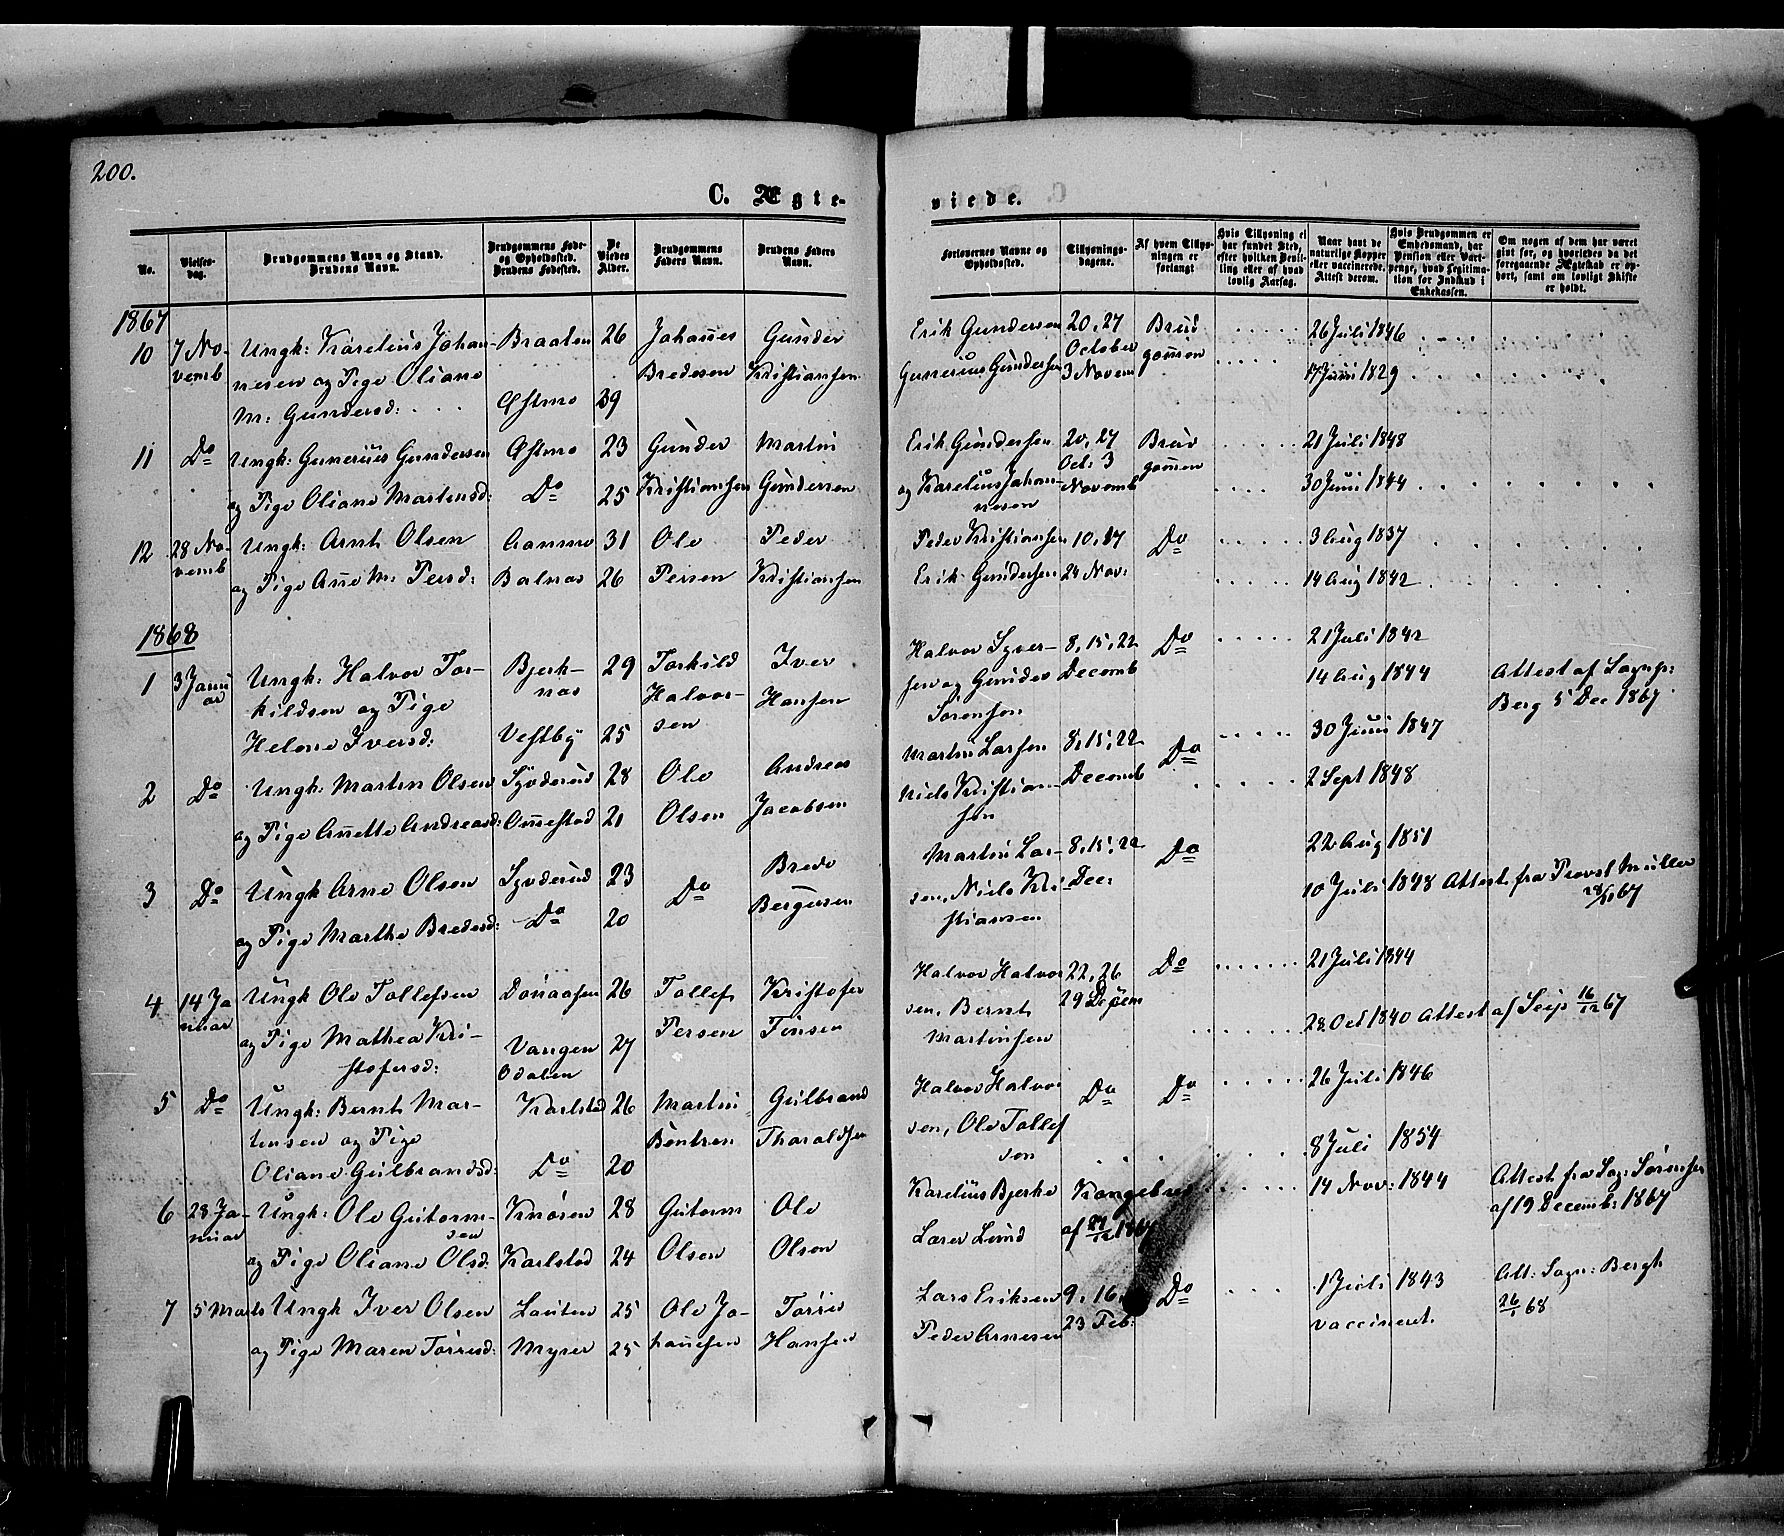 200.
C. Ægte-
viede.
No.
Vielses-
dag.
Brudgommens Navn og Stand.
Brudens Navn.
Brudgommens Føde-
og Opholdssted.
Brudens Fødested.
De
Viedes
Alder.
Brudgommens
Faders Navn.
Brudens Faders
Navn.
Forlovernes Navne og
Opholdssted.
Tillysnings-
dagene.
Af hvem Tillys-
ningen er
forlangt
Hvis Tillysning ei
har fundet Sted,
efter hvilken Bevil-
ling eller af hvad
lovlig Aarsag.
Naar havt de
naturlige Kopper
eller vaccinerede.
Attest derom.
Hvis Brudgommen er
Embedsmand, har
Pension eller Vart-
penge, hvad Legitima-
tion for Indskud i
Enkekassen.
Om nogen af dem har været
gift før, og hvorledes da det
foregaaende Ægteskab er op-
hørt, samt om lovligt Skifte
er holdt.
1867
10 7 No-
vemb
Ungk: Karelius Johan-
nesen og Pige Oliane
M: Gundersd:
Braaten 26 Johannes
Bredesen
Gunder
Kristiansen
Østmo 39
Erik Gundersen 20, 27
October
3 Novem
Gunerius Gundersen
Brud
gommen
26 Juli 1846
17 Juni 1829
11 Do Ungk: Gunerius Gundersen Østmo 23 Gunder Martin
og Pige Oliane Martinsd: Do 25 Kristiansen Gundersen
Erik Gundersen 20, 27
Oct: 3
Novemb
og Karelius Johan-
nesen
Brud
gommen
21 Juli 1848
30 Juni 1844
12 28 No-
vemb
Ungk: Arnt Olsen Aanmo 31 Ole Peder
og Pige Ane M: Persd: Balnes 26 Persen Kristiansen
Peder Kristiansen 10, 17 Do 3 Aug 1837
Erik Gundersen 24 Nov: 14 Aug 1842
1868
1 3 Janu
ar
Ungk: Halvor Tor-
kildsen og Pige
Helene Iversd:
Bjerk-
nes
29 Torkild
Halvor-
sen
Iver
Hansen
Vestby 25
Halvor Syver-
sen og Gunder
Sørensen
8, 15, 22
Decemb
Do 21 Juli 1842
14 Aug 1844
Attest af Sognep:
Berg 5 Dec 1867
2 Do Ungk: Martin Olsen Syverud 28 Ole Andreas
og Pige Anette Andreasd: Omestad 21 Olsen Jacobsen
Martin Larsen 8, 15, 22
Decemb
Niels Kristian-
sen
Do 30 Juni 1847
2 Sept 1848
3 Do Ungk Arne Olsen Syverud 23 Do Brede
Bergersen
og Pige Marthe Bredesd: Do 20
Martin Lar-
sen, Niels Kri-
stiansen
8, 15, 22
Dec:
Do 22 Aug 1851
10 Juli 1848 Attest fra Provst Müller
28/11 67
4 14 Ja
nuar
Ungk Ole Tollefsen 26 Tollef Kristofer
og Pige Mathea Kri-
stofersd:
Vangen
Odalen
27 Persen Finsen
Halvor Halvor
sen, Bernt
Martinsen
22, 26
29 Decem
Do 21 Juli 1844
28 Oct 1840 Attest af Seip 16/12 67
5 Do Ungk: Bernt Mar-
tinsen og Pige
Oliane Gulbrandsd:
Karlstad 26 Martin
Bentsen
Gulbrand
Tharaldsen
Do 20
Halvor Halvor
sen, Ole Tollef
sen
Do Do 26 Juli 1846
8 Juli 1854
6 28 Ja-
nuar
Ungk: Ole Gutorm-
sen
Knoren 28 Gutorm Ole
og Pige Oliane Olsd: Karlstad 24 Olsen Olsen
Karelius Bjerke Kongebrev
Lærer Lund af 27/12 1867
14 Nov: 1844 Attest fra Sog: Sørensen
af 19 Decemb: 1867
7 5 Marts Ungk Iver Olsen Lauten 25 Ole Jo-
hansen
Torre
Hansen
og Pige Maren Torresd: Myrer 25
Lars Eriksen 9, 16,
23 Feb:
Peder Arnesen
Do 1 Juli 1843
vaccineret.
Att: Sogn: Bergh
26/1 68